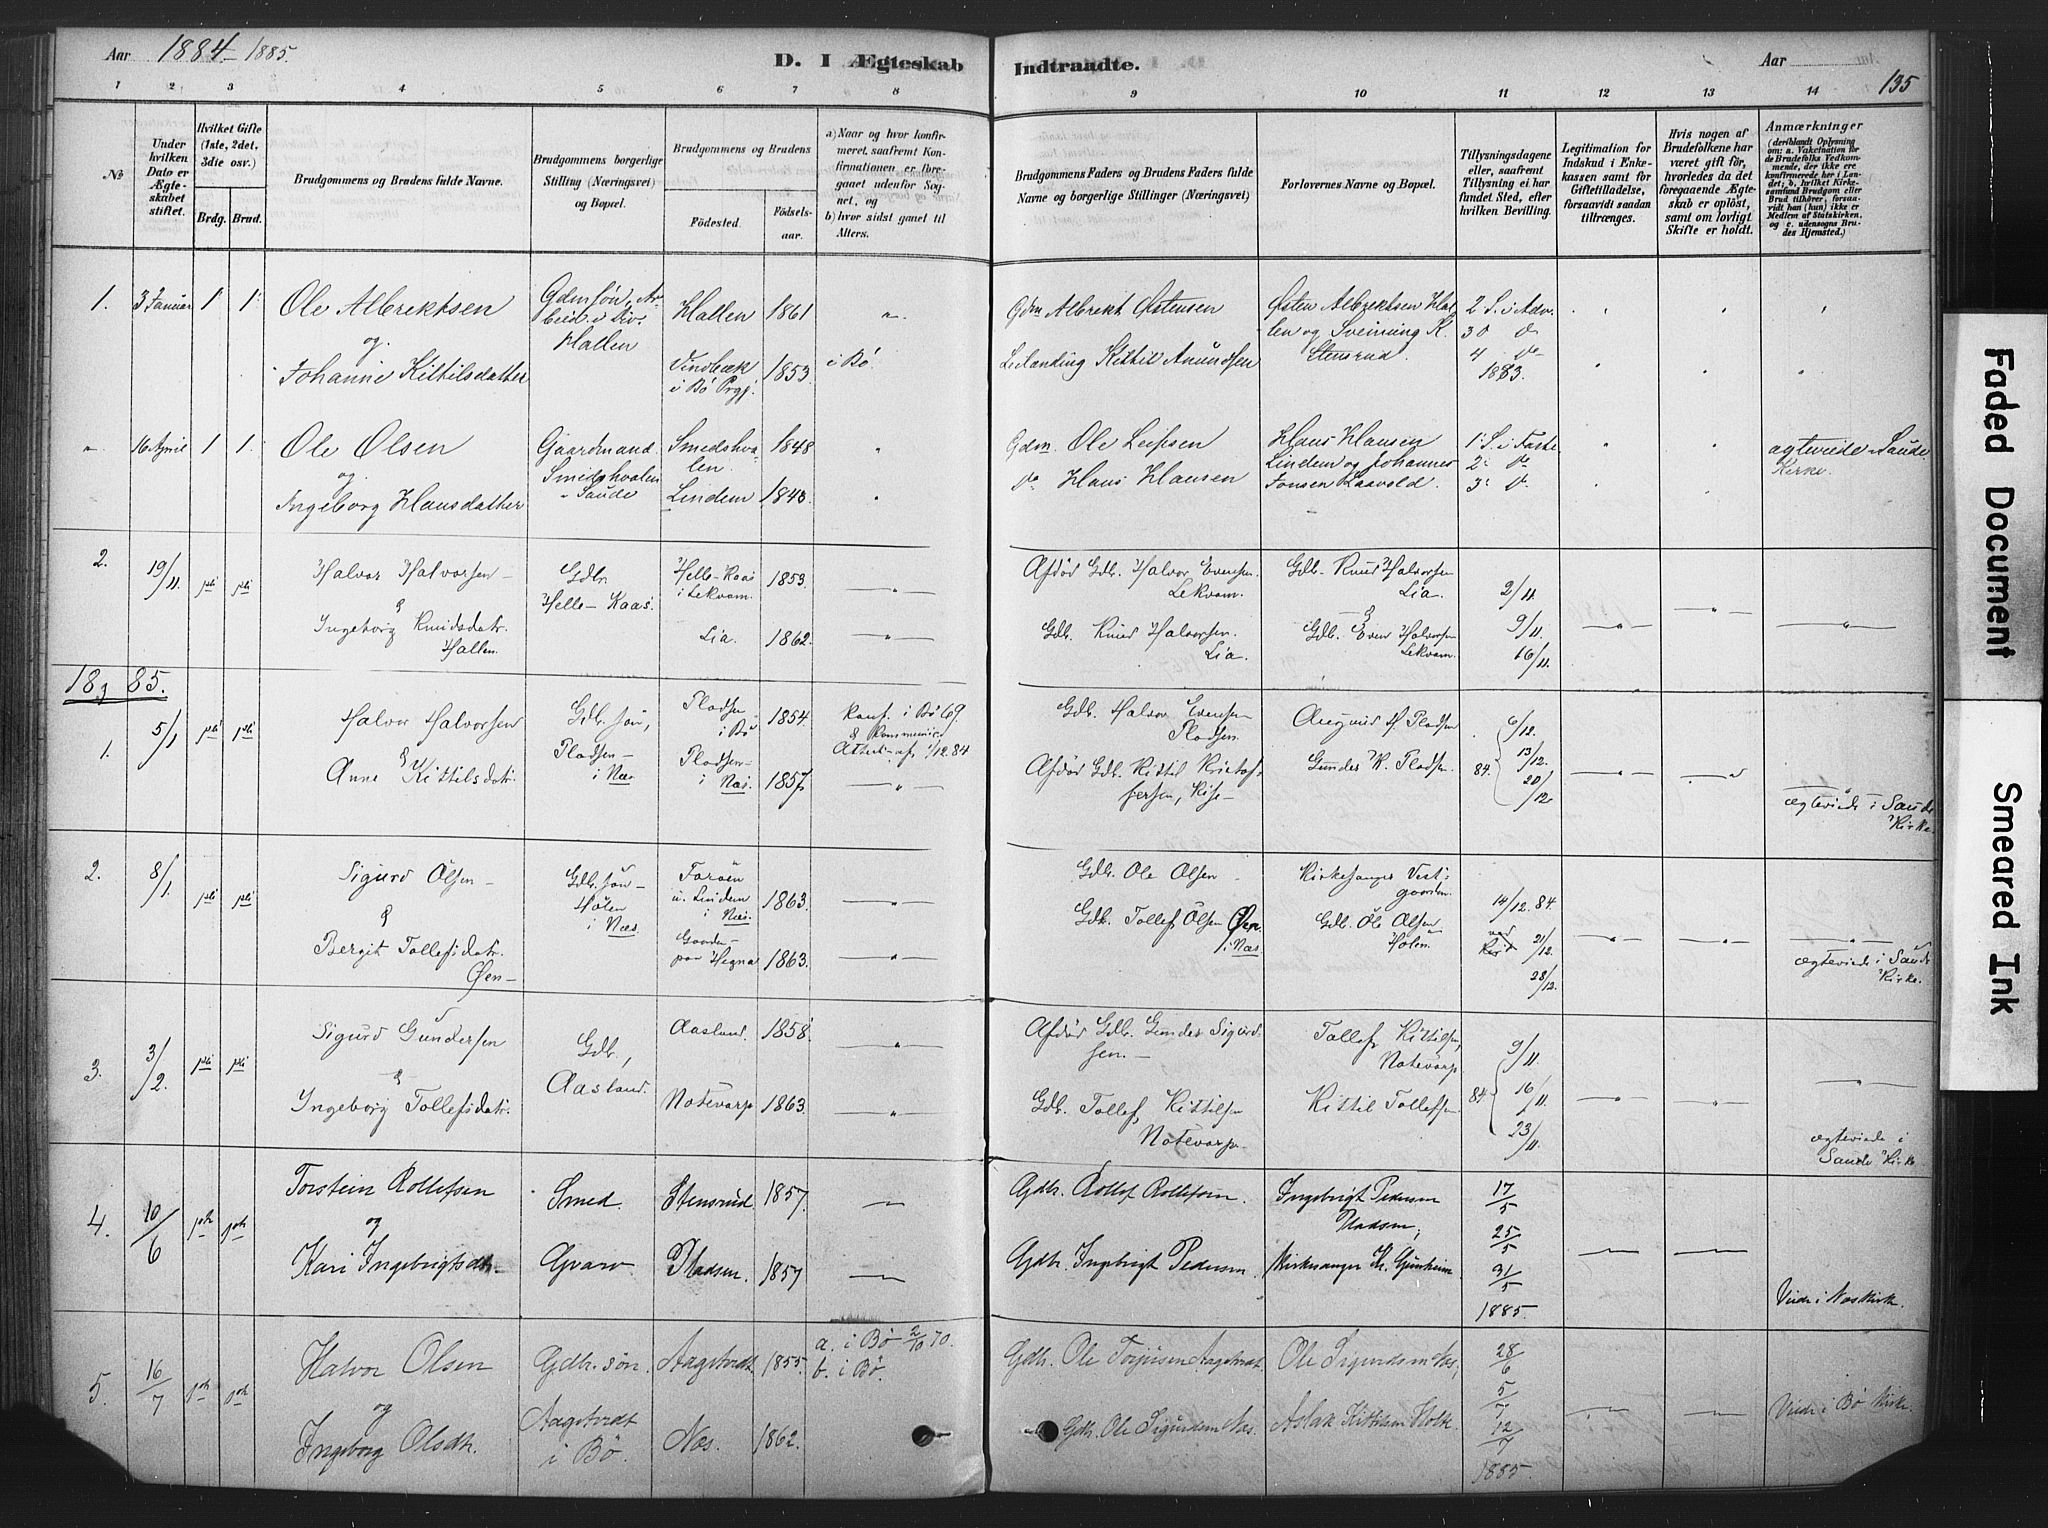 Aar 1884-1885.
D. I Ægteskab
Indtraadte.
Aar
135
1 2 3 4 5 6 7 8 9 10 11 12 13 14
№
Under hvilken Dato er Ægteskabet stiftet.
Hvilket Gifte (1ste, 2det, 3die osv.)
Brdg. Brud.
Brudgommens og Brudens fulde Navne.
Brudgommens borgerlige Stilling (Næringsvei) og Bopæl.
Brudgommens og Brudens
Födested.
Födsels-aar.
a) Naar og hvor konfirmeret, saafremt Konfirmationen er foregaaet udenför Sognet, og
b) hvor sidst ganet til Alters.
Brudgommens Faders og Brudens Faders fulde Navne og borgerlige Stillinger (Næringsvei)
Forlovernes Navne og Bopæl.
Tillysningsdagene eller, saafremt Tillysning ei har fundet Sted, efter hvilken Bevilling.
Legitimation for Indskud i Enkekassen samt for Giftetilladelse, forsaavidt saadan tiltrænges.
Hvis nogen af Brudefolkene har været gift för, hvorledes da det foregaaende Ægteskab er oplöst, samt om lovligt Skifte er holdt.
Anmærkninger
(deriblandt Oplysning om: a. Vakcination for de Brudefolks Vedkommende, der ikke ere konfirmerede her i Landet; b. hvilket Kirkesamfund Brudgom eller Brud tilhörer, forsaavidt han (hun) ikke er Medlem af Statskirken, og c. udensogns Brudes Hjemsted.)
1. 3 Januar 1 1
Ole Albrektsen
og
Johanne Kittilsdatter
Gdmsön, Ar
beid.
Hallen
Hallen 1861
Vindbæk
i Bö Prgj. 1853
i Bö.
Gdm Albrekt Östensen
Leilænding Kittil Amundsen
Østen Albrektsen Hal
len og Sveinung K.
Stensrud.
2 S. i Adv.
3 d
4 do
1883.
16 April 1 1
Ole Olsen
og
Ingeborg Hansdatter
Gaardmand
Smedshvalen
Saude
Smedshva
len. 1848
Lindem 1843
Gdm. Ole Leifsen
do Hans Hansen
Hans Hansen
Lindem og Johannes
Jonsen Laavold.
1: S. i Faste
2: do
3: do
ægteviede i Saude
Kirke.
2. 19/11 1ste 1ste
Halvor Halvorsen
&
Ingeborg Knudsdatr.
Hallen.
Gdbr.
Helle-Kaas.
Helle-Kaas
i Lekvam. 1853.
Lia. 1862.
Afdöd Gdb. Halvor Evensen
Lekvam.
Gdb. Knud Halvorsen.
Lia.
Gdb. Knud Halvorsen
Lia.
&
Gdb. Even Halvorsen
Lekvam.
2/11
9/11.
16/11.
1885.
1. 5/1 1ste 1ste
Halvor Halvorsen
&
Anne Kittilsdatr.
Gdb. sön,
Pladsen
i Næs
Pladsen
i Bö 1854.
Pladsen
i Næs. 1857
Konf. i Bö 69.
& Kommunice
Attest af 1/12.84
Gdb. Halvor Evensen
Pladsen.
Afdöd Gdb. Kittil Kristof
fersen, Kise
H. Pladsen
Gunder K. Pladsen.
84
6/12.
13/12.
20/12
ægteviede i Saude
Kirke.
2. 8/1. 1ste 1ste
Sigurd Olsen
&
Bergit Tollefsdatr.
Øen
Gdb. sön
Holen
i Næs
u. Lindem
i Næs. 1863.
Hegna 1863.
Gdb. Ole Olsen
Gdb. Tollef Olsen Øen.
i Næs
Kirkesanger Vest
gaarden
Gdb. Ole Olsen
Holen.
14/12. 84.
21/12.
28/12.
ægteviede i Saude
Kirke.
3. 3/2. 1ste 1ste
Sigurd Gundersen
&
Ingeborg Tollefsdatr.
Gdb.
Aasland.
Aasland. 1858
Notevarp 1863.
Afdöd Gdb. Gunder Sigurd
sen.
Gdb. Tollef Kittilsen
Notevarp.
Tollef Kittilsen,
Notevarp
Kittil Tollefsen
84
9/11
16/11.
23/11.
ægteviede i
Saude Kirke
4. 10/6
Torstein Rollefsen
og
Kari Ingebrigtsdtr.
Smed
Gvarv
Stensrud 1857.
Pladsen. 1857
Gdbr. Rollef Rollefsen.
Gdbr. Ingebrigt Pedersen
Ingebrigt Pedersen
Pladsen,
Kirkesanger H. Gunheim
17/5
25/5
31/5
1885.
Viede i Næs Kirke.
5. 16/7
Halvor Olsen
og
Ingeborg Olsdtr.
Gdbr. sön.
Aagetvedt
i Bö.
Aagetvedt 1855
Næs. 1862.
a. i Bö 2/10 70.
b. i Bö.
Gdbr. Ole Torjusen Aagetvedt.
Gdbr. Ole Sigurdsen Næs.
Ole Sigurdsen Næs,
Aslak Kittilsen Holte
28/6
5/7
12/7
1885.
Viede i Bö Kirke.
Faded Document
Smeared Ink